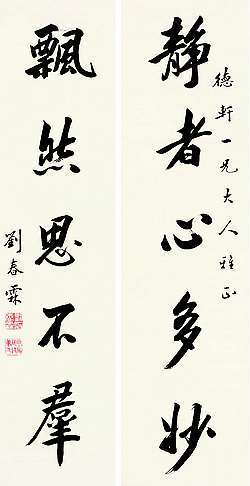 德軒一兄大人雅正
静者心多妙
飄然思不羣
劉春霖